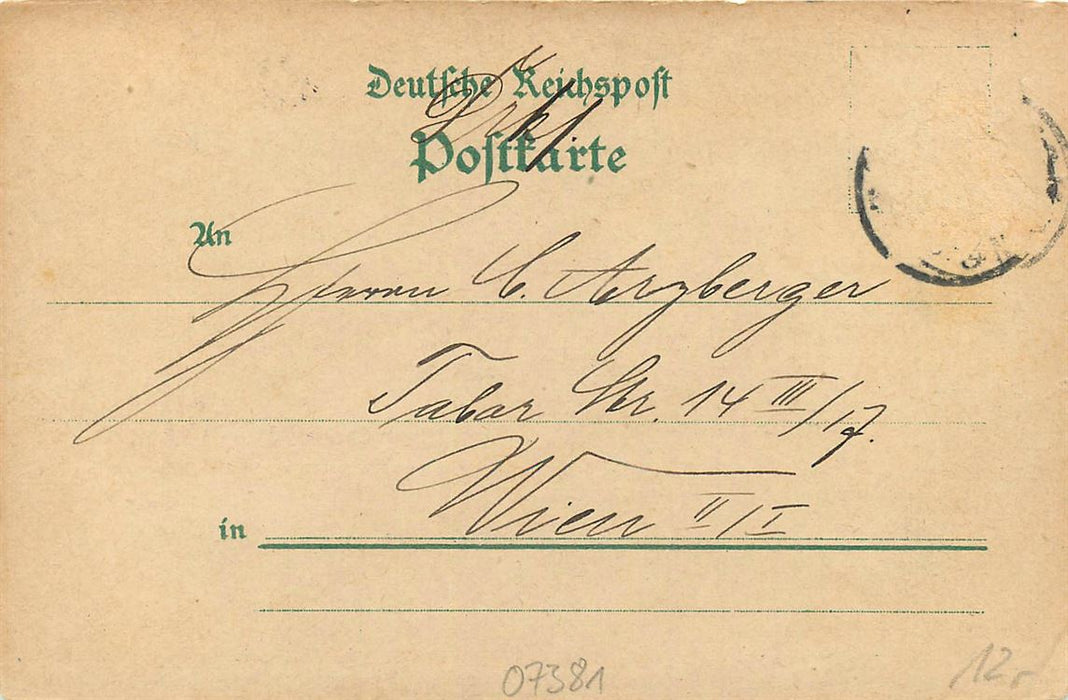 Deutsche Reichspost
Postkarte
An
Herrn C. Arzberger
Tabor Str. 14 III/17.
in Wien II/I
07381
12,-